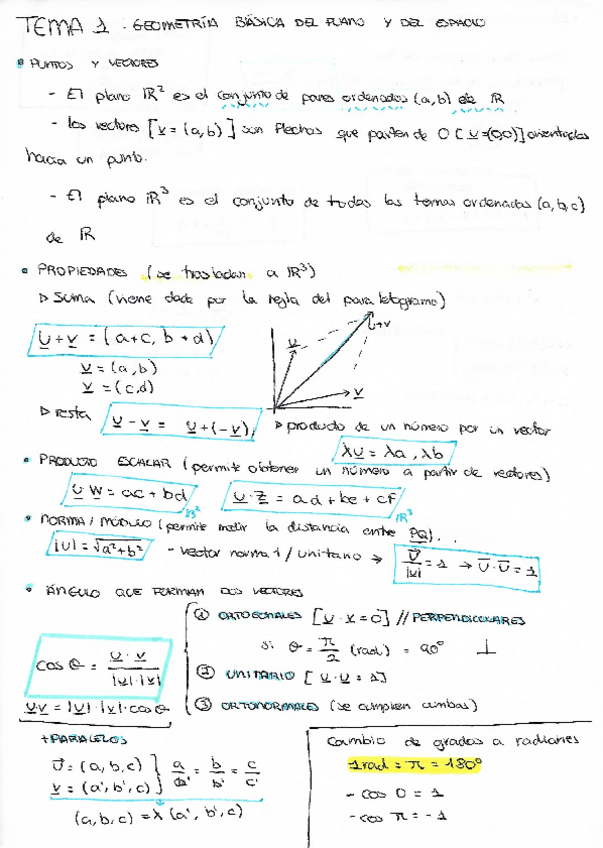 TEMA 1. GEOMETRÍA BÁSICA DEL PLANO Y DEL ESPACIO
• PUNTOS Y VECTORES
- El plano ℝ² es el conjunto de pares ordenados (a, b) de ℝ
- Los vectores [v = (a, b)] son flechas que parten de O [v = (0,0)] orientadas
hacia un punto.
- El plano ℝ³ es el conjunto de todas las ternas ordenadas (a, b, c)
de ℝ
• PROPIEDADES (se trasladan a ℝ³)
▷ Suma (viene dada por la regla del paralelogramo)
u + v = (a+c, b+d)
u = (a, b)
v = (c, d)
v
u+v
v
▷ resta
u - v = u + (-v)
▷ producto de un número por un vector
λu = λa, λb
• PRODUCTO ESCALAR (permite obtener un número a partir de vectores)
u·w = ac + bd ℝ²
u·z = ad + be + cf ℝ³
• NORMA / MÓDULO (permite medir la distancia entre PQ)...
|u| = √a² + b²
- vector norma 1 / unitario → v/|v| = 1 → u·u = 1
• ÁNGULO QUE FORMAN DOS VECTORES
① ORTOGONALES [u · v = 0] // PERPENDICULARES
si θ = π/2 (rad) = 90° ⊥
② UNITARIO [u · u = 1]
③ ORTONORMALES (se cumplen ambas)
cos θ = u · v / |u|·|v|
u v = |u|·|v|·cos θ
+ PARALELOS
u = (a, b, c)
v = (a', b', c')
a/a' = b/b' = c/c'
(a, b, c) = λ (a', b', c')
Cambio de grados a radianes
1 rad = π = 180°
- cos 0 = 1
- cos π = -1